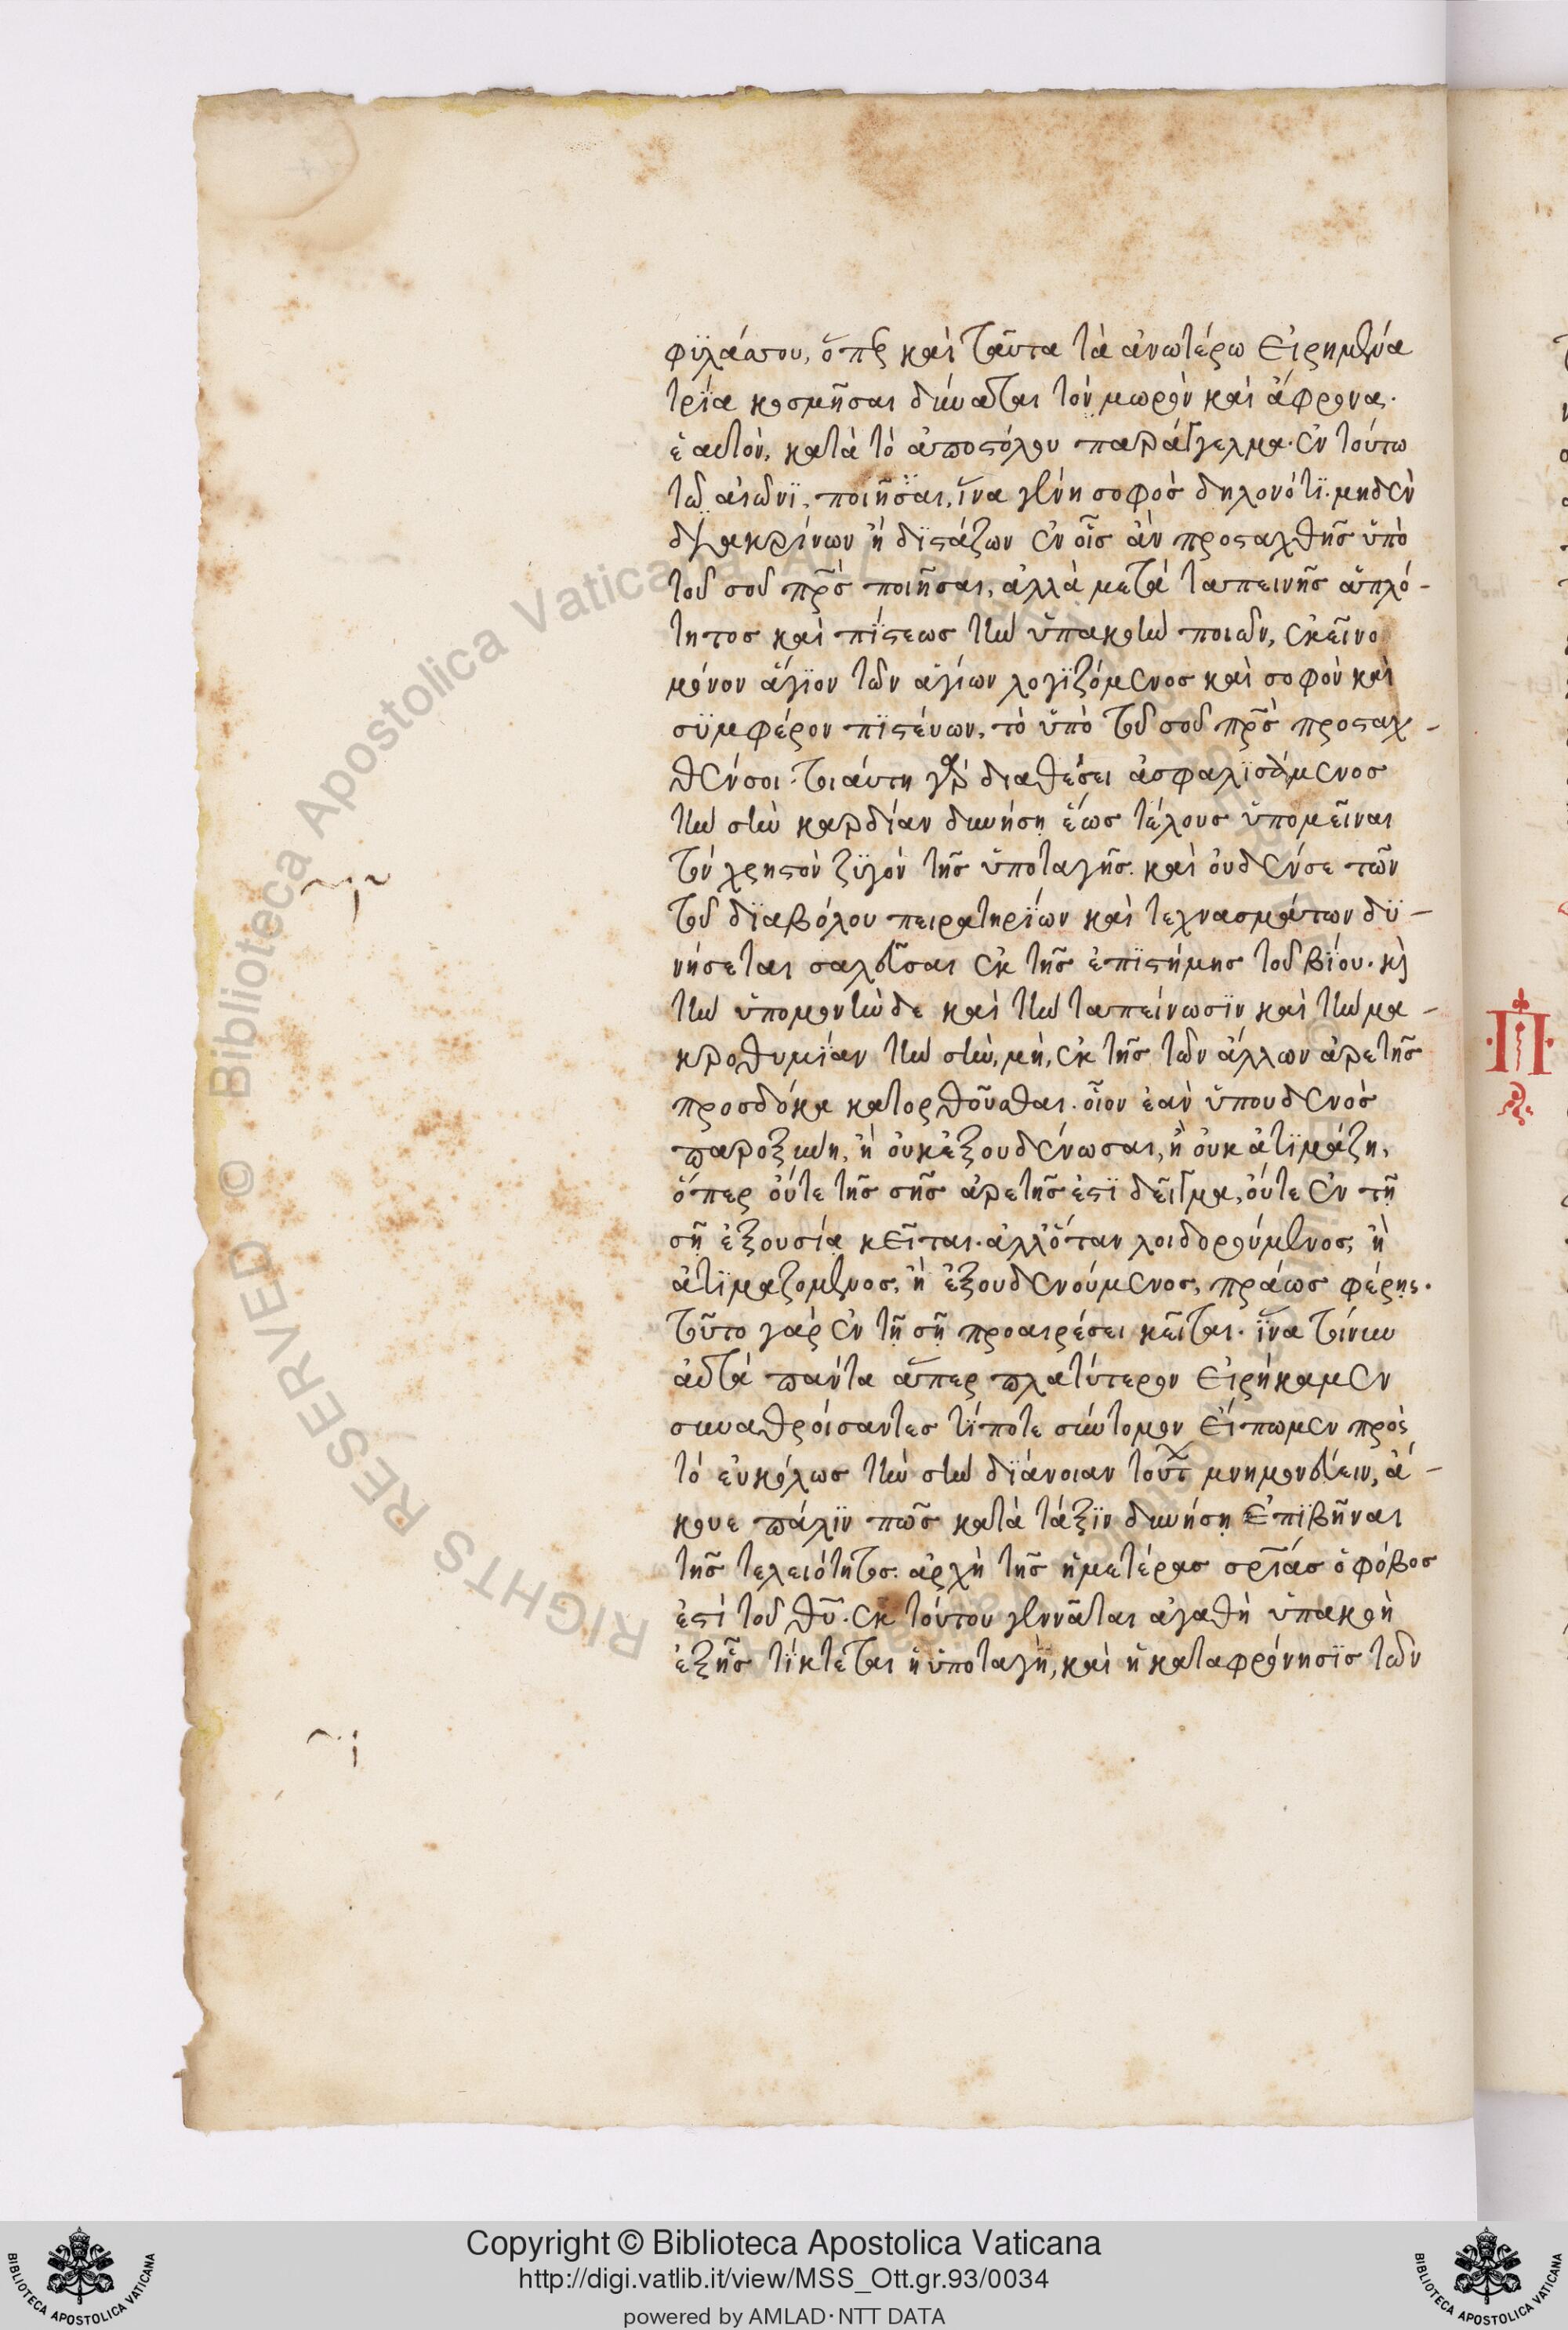 φϋλάττου, ὅπερ καὶ ταῦτα τὰ ἀνωτέρω εἰρημένα
τρία κοσμῆσαι δύναται τὸν μωρὸν καὶ ἄφρονα.
ἑαυτὸν, κατὰ τὸ ἀποστόλου παράγγελμα. ἐν τούτω
τῶ αἰῶνϊ, ποιῆσαι, ἵνα γένη σοφὸσ δηλονότϊ. μηδὲν
διακρίνων ἢ δϊστάζων ἐν οἷσ ἂν προσταχθῆσ ὑπὸ
τοῦ σοῦ πρ̅σ ποιῆσαι, ἀλλὰ μετὰ ταπεινῆσ ἁπλό-
τητοσ καὶ πίστεωσ τὴν ὑπακοὴν ποιῶν, ἐκεῖνο
μόνον ἅγϊον τῶν ἁγίων λογϊζόμενοσ καὶ σοφὸν καὶ
σϋμφέρον πϊστεύων, τὸ ὑπὸ τοῦ σοῦ πρ̅σ προσταχ-
θένσοι. τοιαύτη γὰρ διαθέσει ἀσφαλϊσάμενοσ
τὴν σὴν καρδίαν δυνήση ἕωσ τέλουσ ὑπομεῖναι
τὸν χρηστὸν ζϋγὸν τῆσ ὑποταγῆσ. καὶ ὀυδένσε τῶν
τοῦ δϊαβόλου πειρατηρίων καὶ τεχνασμάτων δϋ-
νήσεται σαλεῦσαι ἐκ τῆσ ἐπϊστήμησ τοῦ βίου. κὶ
τὴν ὑπομονὴν δε καὶ τὴν ταπείνωσϊν καὶ τὴν μα-
κροθυμίαν τὴν σὴν, μὴ, ἐκ τῆσ τῶν ἄλλων ἀρετῆσ
προσδόκα κατορθοῦσθαι. οἷον ἐὰν ὑπουδενὸσ
παροξυνη, ἢ ὀυκἐξουδένωσαι, ἢ ὀυκ ἀτϊμάζη,
ὅπερ ὄυτε τῆσ σῆσ ἀρετῆσ ἐστϊ δεῖγμα, ὄυτε ἐν τῆ
σῆ ἐξουσία κεῖται. ἀλλὅταν λοιδορούμενοσ, ἢ
ἀτϊμαζομενοσ, ἢ ἐξουδενούμενοσ, πράωσ φέρησ.
τοῦτο γὰρ ἐν τῆ σῆ προαιρέσει κεῖται. ἵνα τοίνυν
ἀυτὰ πάντα ἅπερ πλατύτερον εἰρήκαμεν
συναθροίσαντεσ τίποτε σύντομον εἴπωμεν πρὸσ
τὸ εὐκόλωσ τὴν σὴν δϊάνοιαν τούτ μνημονεύειν, ἄ-
κουε πάλϊν πῶσ κατὰ τάξϊν δυνήση ἐπϊβῆναι
τῆσ τελειότητοσ. ἀρχὴ τῆσ ἡμετέρασ σρ̅ιάσ ὁ φόβοσ
ἐστὶ τοῦ θ̅υ. ἐκ τούτου γεννᾶται ἀγαθὴ ὑπακοὴ
ἑξῆσ τίκτεται ἡ ὑποταγὴ, καὶ ἡ καταφρόνησϊσ τῶν
Copyright © Biblioteca Apostolica Vaticana
http://digi.vatlib.it/view/MSS_Ott.gr.93/0034
powered by AMLAD·NTT DATA